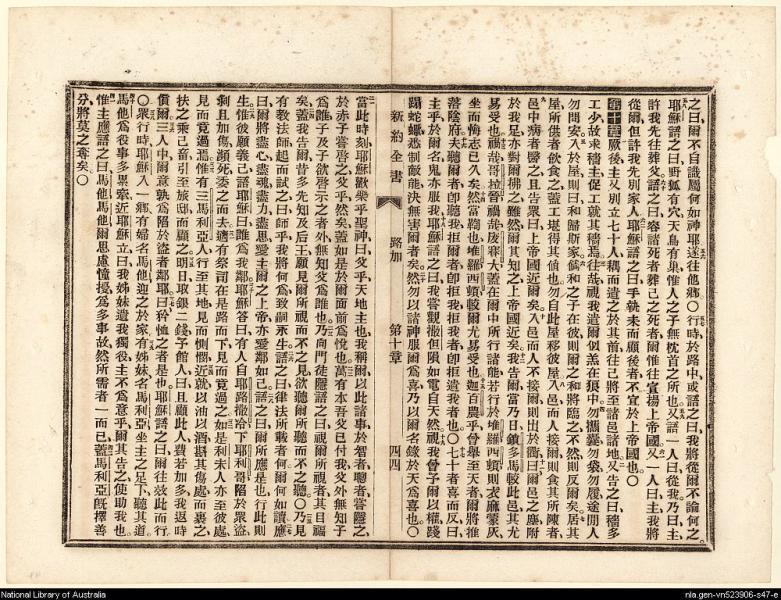 之曰爾不自識屬何如神耶遂往他鄉○行時於路中或語之曰我將從爾不論何之
耶穌語之曰野狐有穴天鳥有巢惟人之子無枕首之所也又語一人曰從我乃曰主
許我先往葬父語之曰容諸死者葬己之死者爾惟往宣揚上帝國又一人曰主我將
從爾但許我先別家人耶穌語之曰手執耒而顧後者不宜於上帝國也○
第十章厥後主又別立七十人耦而遣之於其前往己將至諸邑諸地又告之曰穡多
工少故求穡主促工就其穡焉往哉視我遣爾似羔在狼中勿攜囊勿袋勿履途間人
勿問安入於屋則曰和歸斯家倘和之子在彼則爾之和將臨之不然則反爾矣居其
屋所供者飲食之蓋工堪得其值也勿自此屋移彼屋入邑而人接爾則食其所陳者
邑中病者醫之且告眾曰上帝國近爾矣入邑而人不接爾則出於衢曰爾邑之塵附
於我足亦對爾拂之雖然爾其知之上帝國近矣我告爾當乃日鎖多馬較此邑其尤
易受也禍哉哥拉禍哉大蓋在爾中所行諸能若行於推羅西頓則衣麻蒙灰
坐而悔志已久矣然當鞫也推羅西頓較爾尤易受也迦百農乎曾舉至天者爾將推
落陰府夫聽爾者即聽我拒爾者即拒我拒我者即拒遣我者也○七十者喜而反曰
主乎於爾名鬼亦服我耶穌語之曰我嘗觀撒但隕如電自天然視我曾予爾以權踐
蹋蛇蠍悉制敵能決無害爾者矣然勿以諸神服爾爲喜乃以爾名錄於天爲喜也○
新約全書 路加 第十章 四四
當此時刻耶穌歡樂乎聖神曰父乎天地主也我稱爾以此諸事於智者聰者嘗隱之
於赤子嘗啓之父乎然矣蓋如是於爾面前爲悅也萬有本吾父已付我父外無知子
爲誰子及子欲啓示之者外無知父爲誰也乃向門徒隱語之曰視爾所視者其目福
矣蓋我告爾昔多先知及后王願見爾所視而不之見欲聽爾所聽而不之聽○乃見
有敎法師起而試之曰師乎我將何爲致嗣永生語之曰律法所載者何爾何如讀應
曰爾將盡心盡魂盡力盡思愛主爾之上帝亦愛鄰如己語之曰爾所應是也行此則
生惟彼願義己語耶穌曰誰爲我鄰耶穌答曰有人自耶路撒冷下耶利哥陷於眾盜
剝且加傷瀕死委之而去適有祭司在是路而下見而竟過之如是利未人亦至彼處
見而竟過焉惟有三馬利亞人行至其地見而惻憫近就以油以酒斟其傷處而裹之
扶之乘己畜引至旅邸而顧之明日取銀二錢予館人曰且顧此人費若加多我返時
償爾三人中爾意孰爲陷於盜者鄰耶曰矜恤之者是也耶穌語之曰爾往效此而行
○眾行時耶穌入一鄉有婦名馬他迎之於家有姊妹名馬利亞坐主之足下聽其道
馬他爲役事多累奔近耶穌立曰我姊妹遺我獨役主不爲意乎爾其告之使助我也
惟主應語之曰馬他馬他爾思慮憧擾爲多事故然所需者一而已蓋馬利亞旣擇善
分將莫之奪矣○
National Library of Australia
nla.gen-vn523906-s47-e